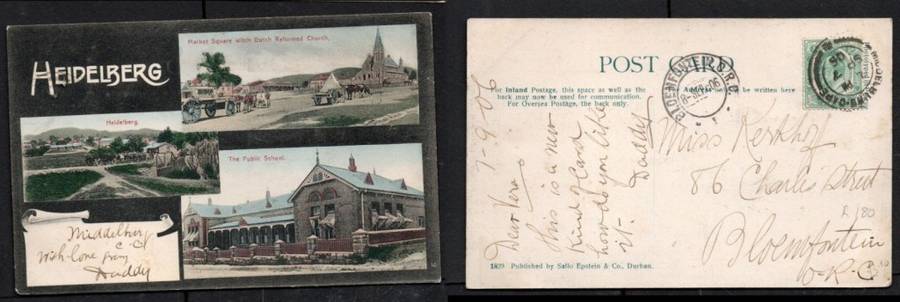 HEIDELBERG
Market Square witch Dutch Reformed Church.
Heidelberg.
The Public School.
Middelburg
C C
With love from
Daddy
POST CARD
For Inland Postage, this space as well as the
back may now be used for communication.
For Oversea Postage, the back only.
Address to be written here
BLOEMFONTEIN O.R.C.
MIDDELBURG-CAPE
7-9-06
Dear Vera
This is a new
kind of card
how do you like
it.
Daddy
Miss Kerkhof
86 Charles Street
Bloemfontein
O.R.C
R/80
1829 Published by Sallo Epstein & Co., Durban.